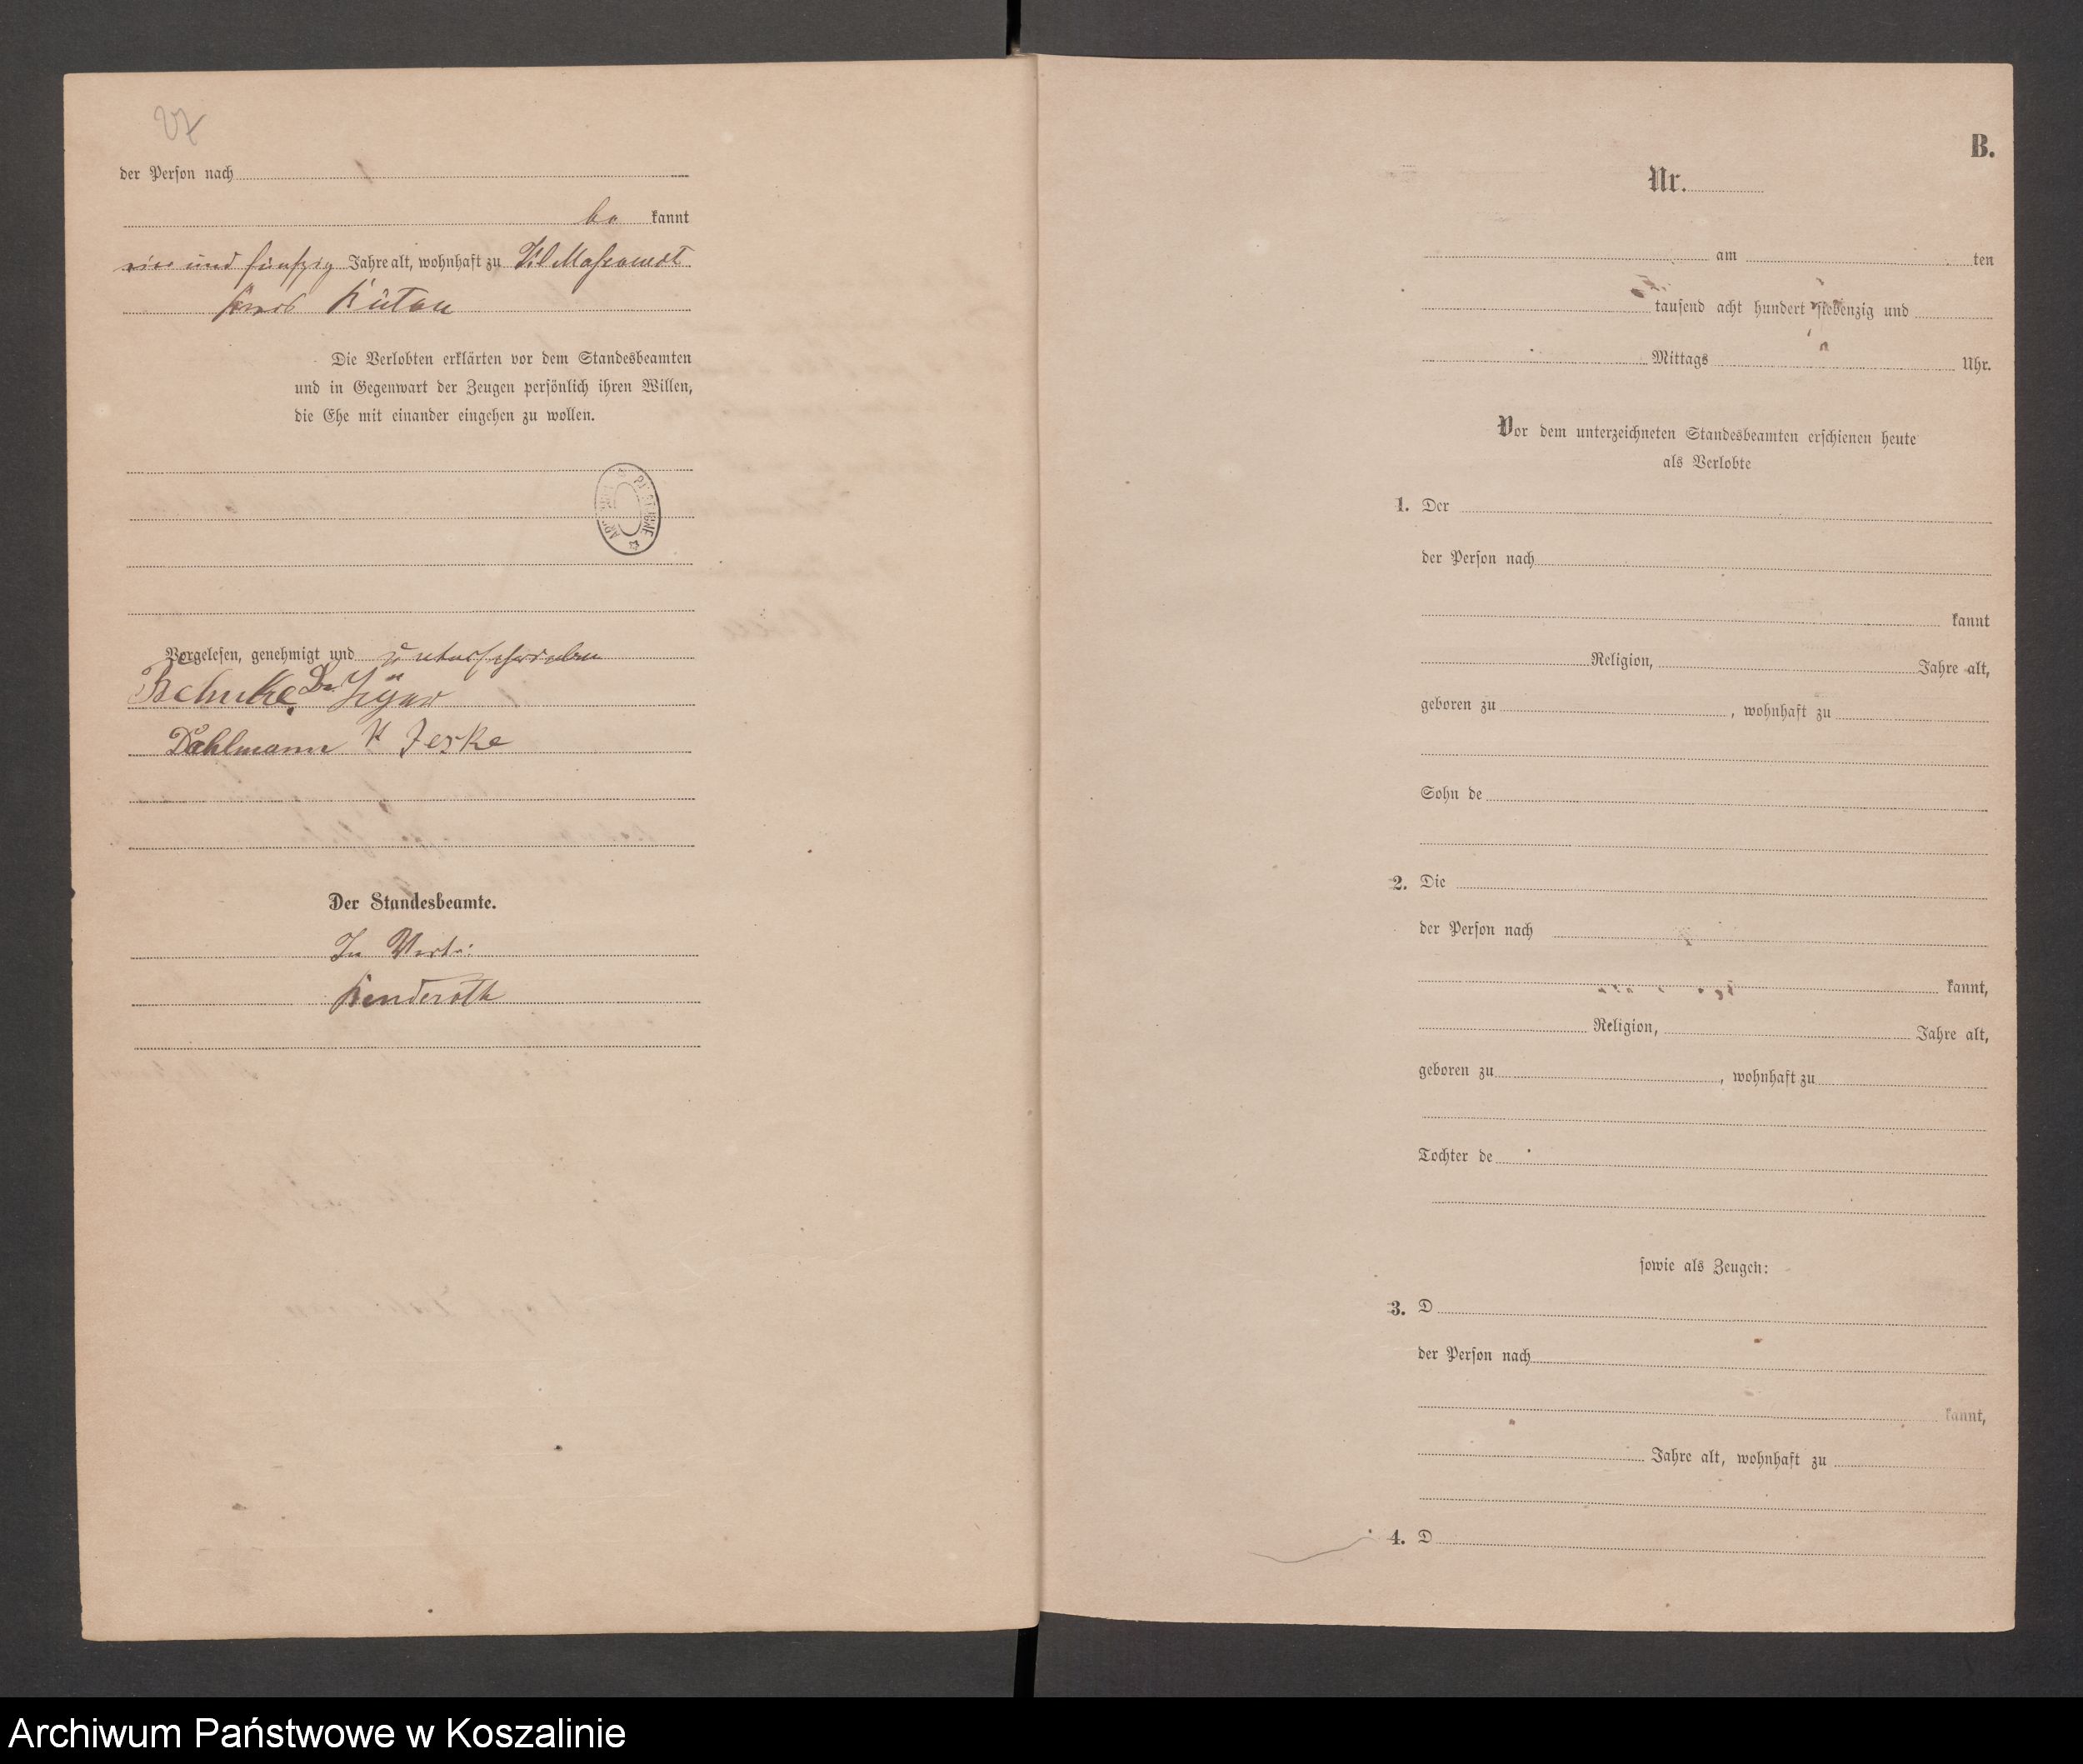 27
der Perſon nach
be kannt
vier und fünfzig Jahre alt, wohnhaft zu Kl Maßowitz
Kreis Bütow
Die Verlobten erklärten vor dem Standesbeamten
und in Gegenwart der Zeugen perſönlich ihren Willen,
die Ehe mit einander eingehen zu wollen.
Vorgeleſen, genehmigt und unterschrieben
Behnke
Dahlmann H Jeske
Der Standesbeamte.
In Vertr:
Benderoth
B.
Nr.
am ten
tauſend acht hundert ſiebenzig und
Mittags Uhr.
Vor dem unterzeichneten Standesbeamten erſchienen heute
als Verlobte
1. Der
der Perſon nach
kannt
Religion, Jahre alt,
geboren zu , wohnhaft zu
Sohn de
2. Die
der Perſon nach
kannt,
Religion, Jahre alt,
geboren zu , wohnhaft zu
Tochter de
ſowie als Zeugen:
3. D
der Perſon nach
kannt,
Jahre alt, wohnhaft zu
4. D
Archiwum Państwowe w Koszalinie